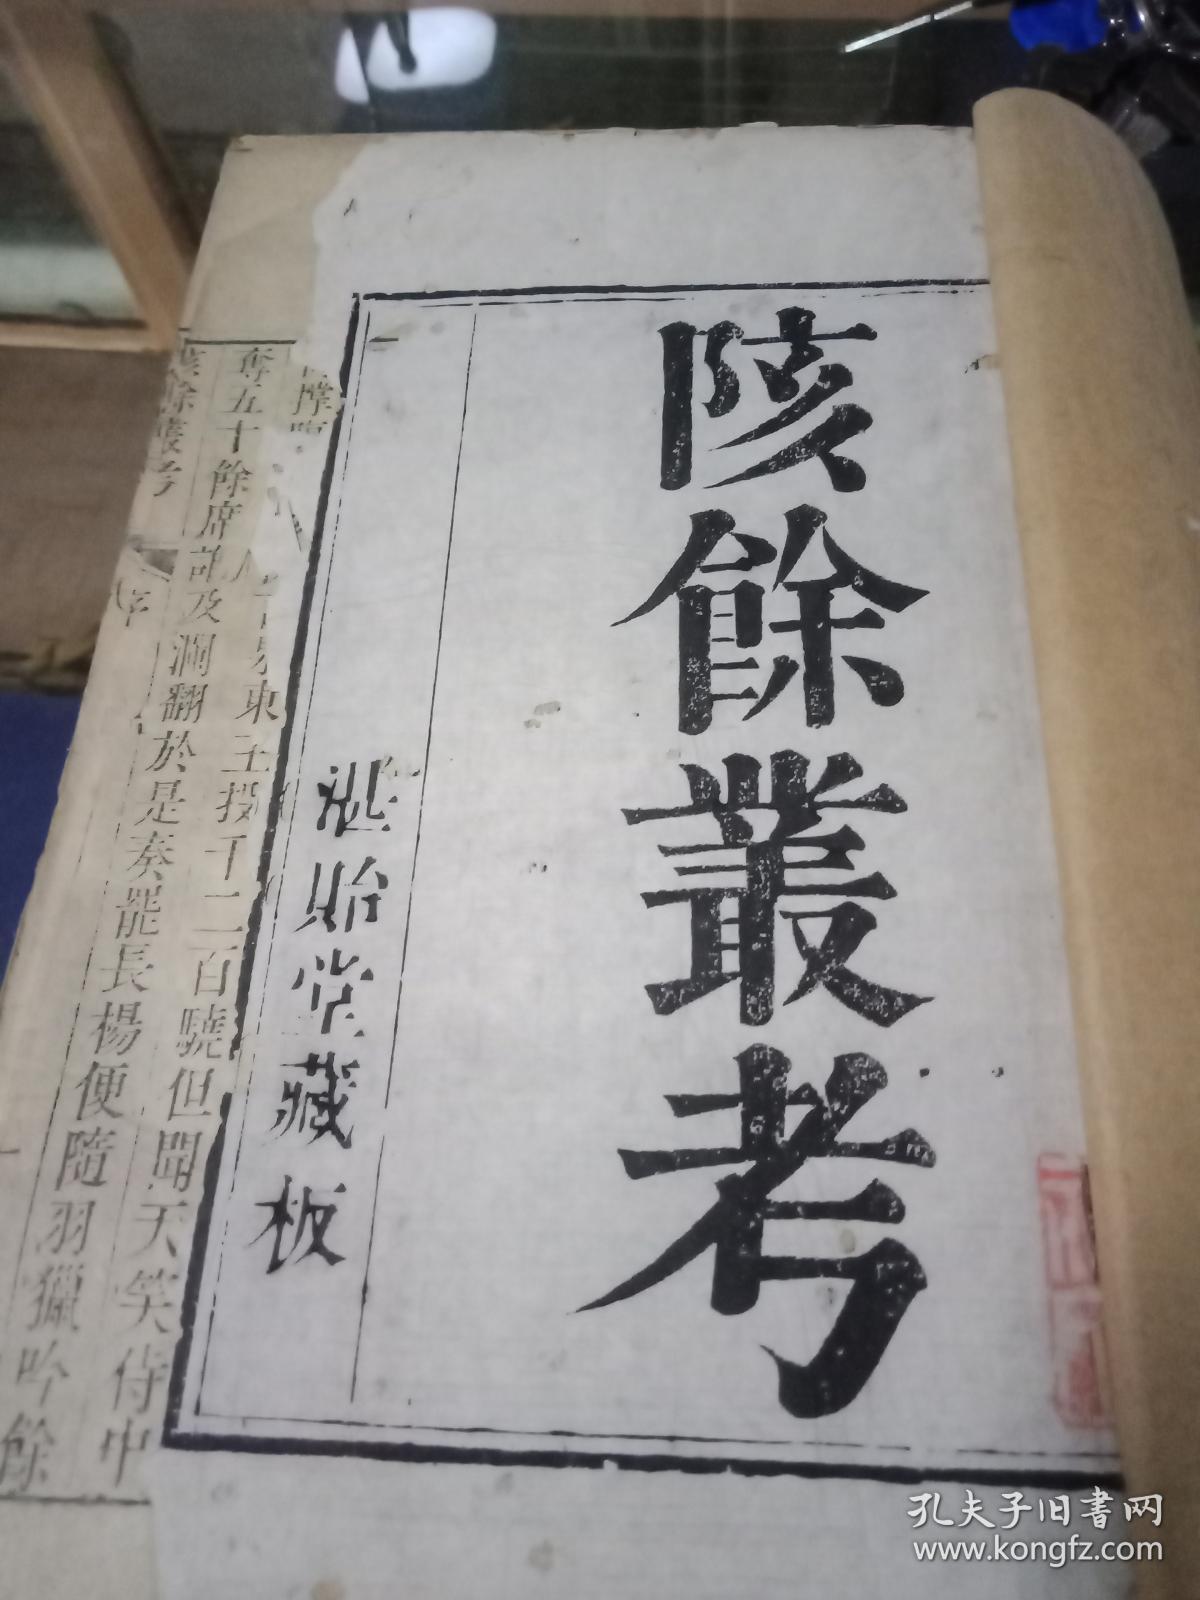 陔餘叢考
湛貽堂藏板
東王投千二百驍但聞天笑侍中
奪五十餘席
及瀾翻於是奏罷長楊便隨羽獵吟餘
餘叢考
孔夫子旧书网
www.kongfz.com